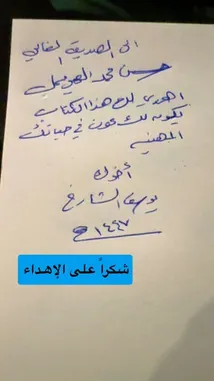 الى الصديق الغالي
حسن محمد الهويملي
اهدي لكم هذا الكتاب
ليكون لك عون في حياتك
المهنيه
أخوك
يوسف الشارخ
١٤٤٧هـ
شكراً على الإهداء